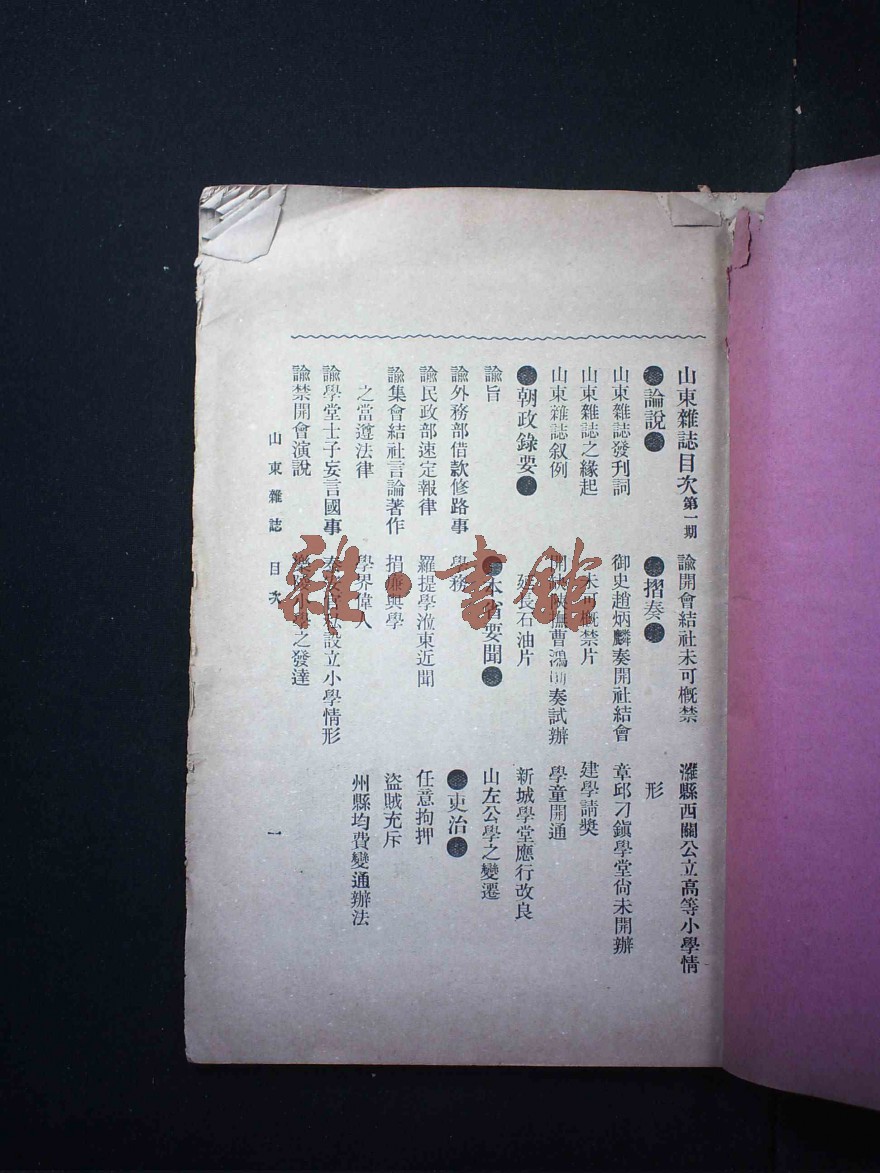 山東雜誌目次第一期
論說
山東雜誌發刊詞
山東雜誌之緣起
山東雜誌叙例
朝政錄要
諭旨
諭外務部借款修路事
諭民政部速定報律
諭集會結社言論著作
之當遵法律
諭學堂士子妄言國事
諭禁開會演說
論開會結社未可概禁
摺奏
御史趙炳麟奏開社結會
未可概禁片
撫曹鴻勛奏試辦
延長石油片
本省要聞
學務
羅提學涖東近聞
捐廉興學
學界偉人
設立小學情形
之發達
濰縣西關公立高等小學情
形
章邱刁鎮學堂尙未開辦
建學請奬
學童開通
新城學堂應行改良
山左公學之變遷
吏治
任意拘押
盜賊充斥
州縣均費變通辦法
山東雜誌 目次 一
雜·書館